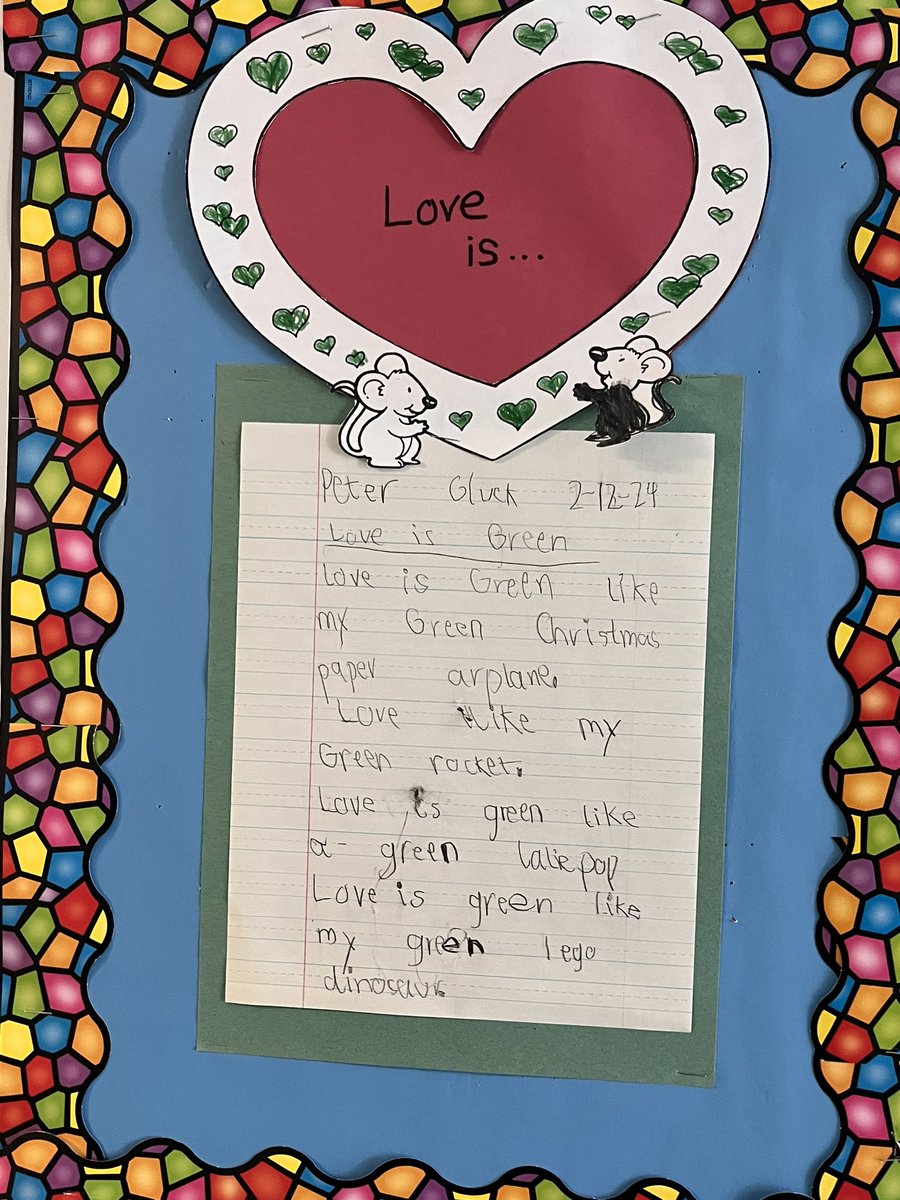 Love
is...
Peter Gluck 2-12-24
Love is Green
Love is Green like
my Green Christmas
paper arplane.
Love like my
Green rocket.
Love is green like
a green laliepop
Love is green like
my green lego
dinosaur.